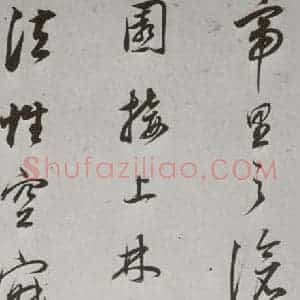 帝里之滄
園接上林
法性空寂
Shufaziliao.COM